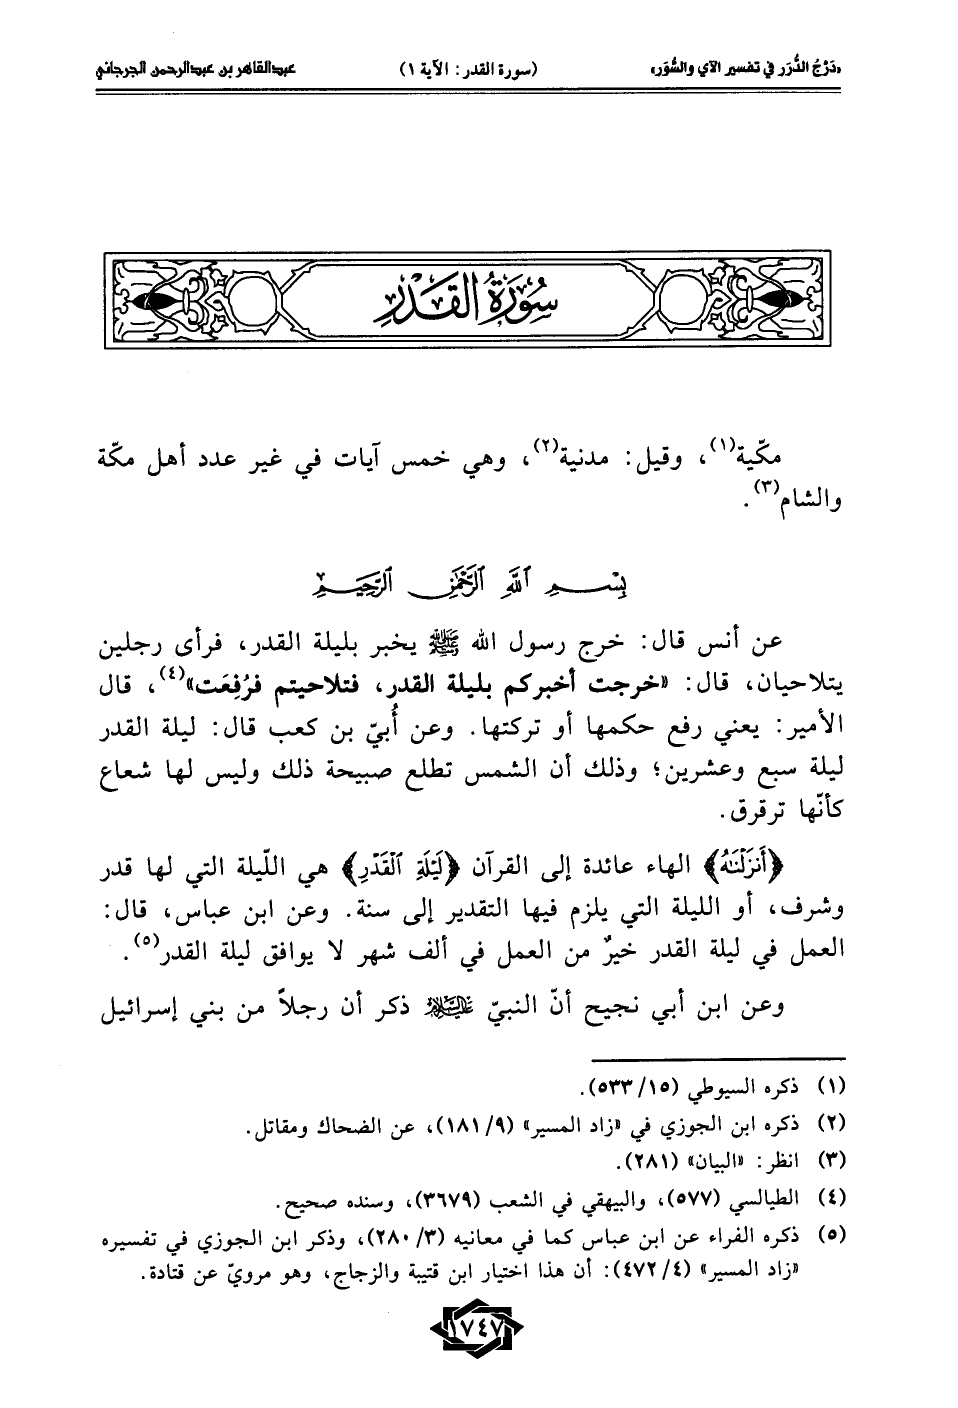 «دَرْجُ الدُّرَر في تفسير الآي والسُّوَر» (سورة القدر: الآية ١) عبدالقاهر بن عبدالرحمن الجرجاني
سُورَةُ القَدْرِ
مكّية(١)، وقيل: مدنية(٢)، وهي خمس آيات في غير عدد أهل مكّة
والشام(٣).
بِسْمِ اللَّهِ الرَّحْمَنِ الرَّحِيمِ
عن أنس قال: خرج رسول الله ﷺ يخبر بليلة القدر، فرأى رجلين
يتلاحيان، قال: «خرجت أخبركم بليلة القدر، فتلاحيتم فرُفِعَت»(٤)، قال
الأمير: يعني رفع حكمها أو تركتها. وعن أُبيّ بن كعب قال: ليلة القدر
ليلة سبع وعشرين؛ وذلك أن الشمس تطلع صبيحة ذلك وليس لها شعاع
كأنّها ترقرق.
﴿أَنزَلْنَاهُ﴾ الهاء عائدة إلى القرآن ﴿لَيْلَةِ الْقَدْرِ﴾ هي اللّيلة التي لها قدر
وشرف، أو الليلة التي يلزم فيها التقدير إلى سنة. وعن ابن عباس، قال:
العمل في ليلة القدر خيرٌ من العمل في ألف شهر لا يوافق ليلة القدر(٥).
وعن ابن أبي نجيح أنّ النبيّ عليه السلام ذكر أن رجلاً من بني إسرائيل
(١) ذكره السيوطي (١٥/ ٥٣٣).
(٢) ذكره ابن الجوزي في «زاد المسير» (٩/ ١٨١)، عن الضحاك ومقاتل.
(٣) انظر: «البيان» (٢٨١).
(٤) الطيالسي (٥٧٧)، والبيهقي في الشعب (٣٦٧٩)، وسنده صحيح.
(٥) ذكره الفراء عن ابن عباس كما في معانيه (٣/ ٢٨٠)، وذكر ابن الجوزي في تفسيره
«زاد المسير» (٤/ ٤٧٢): أن هذا اختيار ابن قتيبة والزجاج، وهو مرويّ عن قتادة.
١٧٤٧